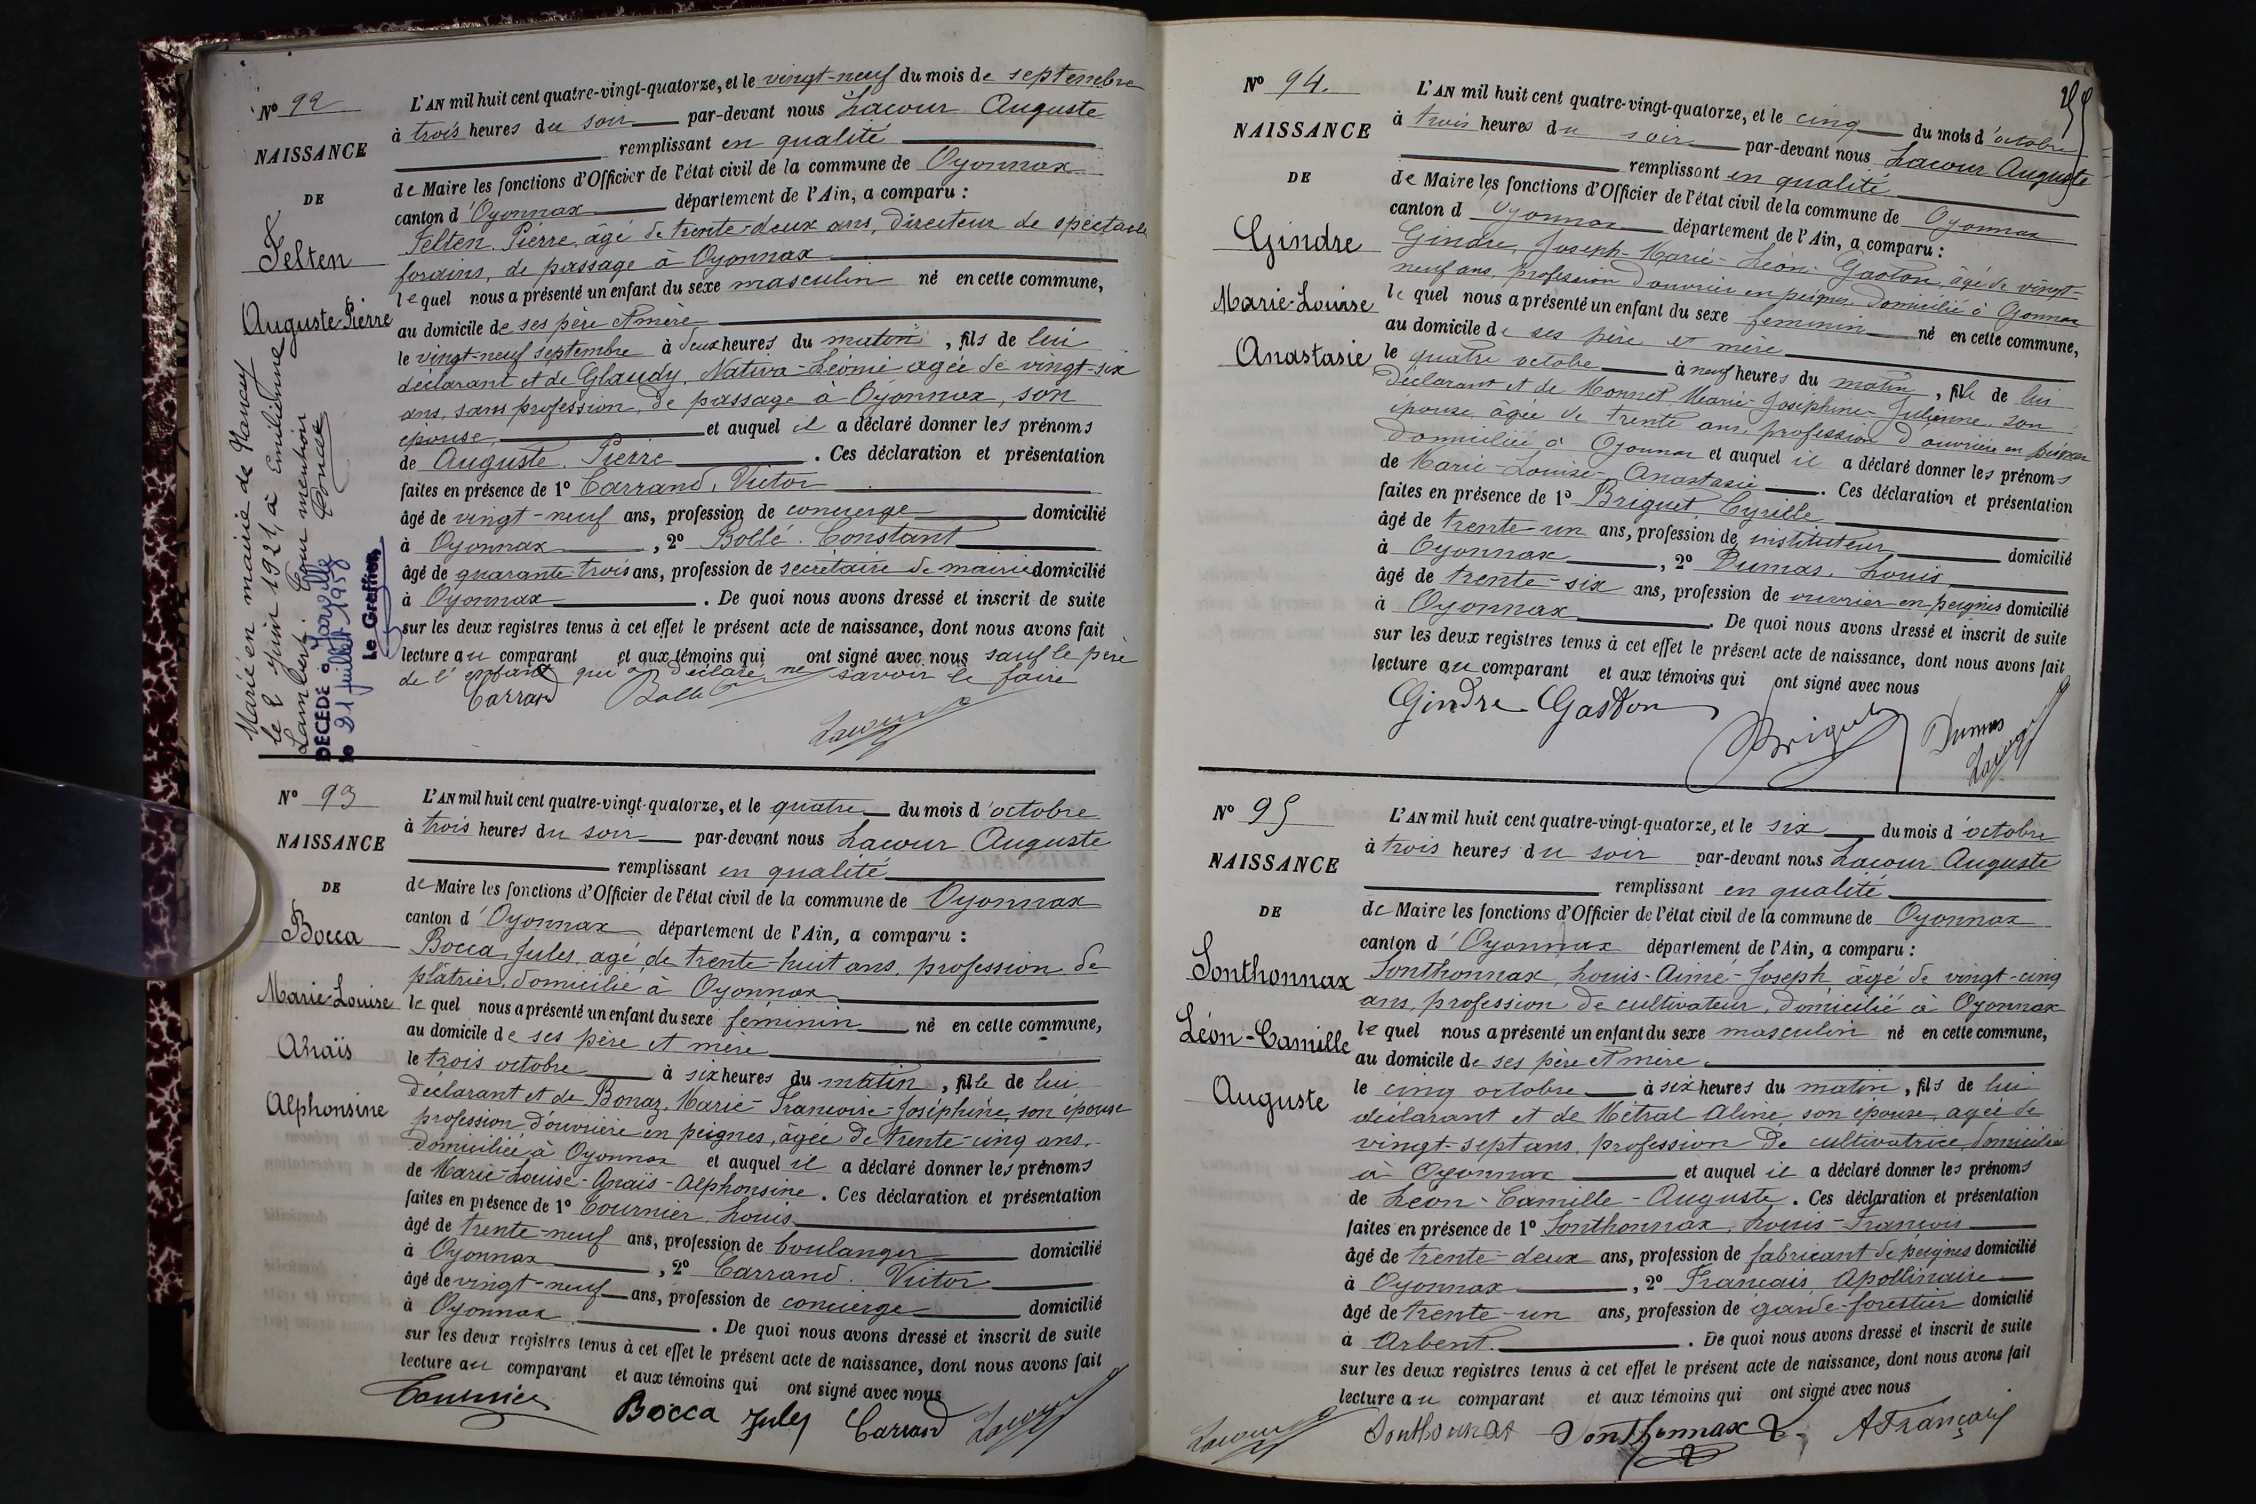 N° 92
NAISSANCE
DE
Felten
Auguste-Pierre
Marié en mairie de Nancy
le 2 juin 1921, à Emilienne
Lambert. Pour mention
DÉCÉDÉ à
le 21 juillet 1958
Le Greffier,
L'AN mil huit cent quatre-vingt-quatorze, et le vingt-neuf du mois de septembre
à trois heures du soir par-devant nous Lacour Auguste
remplissant en qualité
de Maire les fonctions d'Officier de l'état civil de la commune de Oyonnax
canton d'Oyonnax département de l'Ain, a comparu :
Felten, Pierre, âgé de trente-deux ans, directeur de spectacles
forains, de passage à Oyonnax
lequel nous a présenté un enfant du sexe masculin né en cette commune,
au domicile de ses père et mère
le vingt-neuf septembre à deux heures du matin, fils de lui
déclarant et de Glaudy, Nativa-Léonie agée de vingt-six
ans, sans profession, de passage à Oyonnax, son
épouse, et auquel il a déclaré donner les prénoms
de Auguste, Pierre. Ces déclaration et présentation
faites en présence de 1° Carrand, Victor
âgé de vingt-neuf ans, profession de concierge domicilié
à Oyonnax, 2° Bollé. Constant
âgé de quarante-trois ans, profession de secrétaire de mairie domicilié
à Oyonnax. De quoi nous avons dressé et inscrit de suite
sur les deux registres tenus à cet effet le présent acte de naissance, dont nous avons fait
lecture au comparant et aux témoins qui ont signé avec nous sauf le père
de l'enfant qui a déclaré ne savoir le faire
Carrand Bollé
Lacour
N° 93
NAISSANCE
DE
Bocca
Marie-Louise
Anaïs
Alphonsine
L'AN mil huit cent quatre-vingt-quatorze, et le quatre du mois d'octobre
à trois heures du soir par-devant nous Lacour Auguste
remplissant en qualité
de Maire les fonctions d'Officier de l'état civil de la commune de Oyonnax
canton d'Oyonnax département de l'Ain, a comparu :
Bocca Jules, agé de trente-huit ans, profession de
plâtrier, domicilié à Oyonnax
lequel nous a présenté un enfant du sexe féminin né en cette commune,
au domicile de ses père et mère
le trois octobre à six heures du matin, fille de lui
déclarant et de Bonaz, Marie-Françoise-Joséphine, son épouse
profession d'ouvrière en peignes, âgée de trente-cinq ans,
domiciliée à Oyonnax et auquel il a déclaré donner les prénoms
de Marie-Louise-Anaïs-Alphonsine. Ces déclaration et présentation
faites en présence de 1° Tournier, Louis
âgé de trente-neuf ans, profession de boulanger domicilié
à Oyonnax, 2° Carrand. Victor
âgé de vingt-neuf ans, profession de concierge domicilié
à Oyonnax. De quoi nous avons dressé et inscrit de suite
sur les deux registres tenus à cet effet le présent acte de naissance, dont nous avons fait
lecture au comparant et aux témoins qui ont signé avec nous
Tournier Bocca Jules Carrand Lacour
N° 94.
NAISSANCE
DE
Gindre
Marie-Louise
Anastasie
L'AN mil huit cent quatre-vingt-quatorze, et le cinq du mois d'octobre
à trois heures du soir par-devant nous Lacour Auguste
remplissant en qualité
de Maire les fonctions d'Officier de l'état civil de la commune de Oyonnax
canton d Oyonnax département de l'Ain, a comparu :
Gindre, Joseph-Marie-Léon-Gaston, âgé de vingt-
neuf ans, profession d'ouvrier en peignes domicilié à Oyonnax
lequel nous a présenté un enfant du sexe féminin né en cette commune,
au domicile de ses père et mère
le quatre octobre à neuf heures du matin, fille de lui
déclarant et de Monnet Marie-Joséphine-Julienne son
épouse, âgée de trente ans, profession d'ouvrière en peignes
domiciliée à Oyonnax et auquel il a déclaré donner les prénoms
de Marie-Louise-Anastasie. Ces déclaration et présentation
faites en présence de 1° Briguet, Cyrille
âgé de trente-un ans, profession de instituteur domicilié
à Oyonnax, 2° Dumas, Louis
âgé de trente-six ans, profession de ouvrier en peignes domicilié
à Oyonnax. De quoi nous avons dressé et inscrit de suite
sur les deux registres tenus à cet effet le présent acte de naissance, dont nous avons fait
lecture au comparant et aux témoins qui ont signé avec nous
Gindre Gaston Briguet Dumas
Lacour
N° 95
NAISSANCE
DE
Sonthonnax
Léon-Camille
Auguste
L'AN mil huit cent quatre-vingt-quatorze, et le six du mois d'octobre
à trois heures du soir par-devant nous Lacour Auguste
remplissant en qualité
de Maire les fonctions d'Officier de l'état civil de la commune de Oyonnax
canton d'Oyonnax département de l'Ain, a comparu :
Sonthonnax, Louis-Aimé-Joseph, âgé de vingt-cinq
ans, profession de cultivateur, domicilié à Oyonnax
lequel nous a présenté un enfant du sexe masculin né en cette commune,
au domicile de ses père et mère
le cinq octobre à six heures du matin, fils de lui
déclarant et de Métral Aline, son épouse, agée de
vingt-sept ans, profession de cultivatrice, domiciliée
à Oyonnax et auquel il a déclaré donner les prénoms
de Léon-Camille-Auguste. Ces déclaration et présentation
faites en présence de 1° Sonthonnax, Louis-François
âgé de trente-deux ans, profession de fabricant de peignes domicilié
à Oyonnax, 2° Français, Apollinaire
âgé de trente-un ans, profession de garde-forestier domicilié
à Arbent. De quoi nous avons dressé et inscrit de suite
sur les deux registres tenus à cet effet le présent acte de naissance, dont nous avons fait
lecture au comparant et aux témoins qui ont signé avec nous
Lacour Sonthonnax Sonthonnax L. A Français